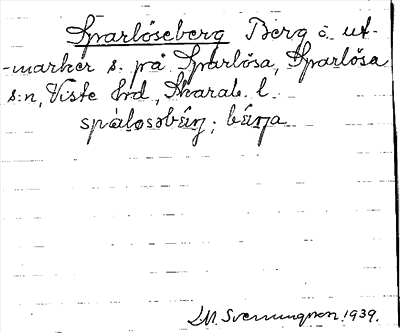 Sparlöseberg Berg o. ut-
-marker s. på Sparlösa, Sparlösa
s:n, Viste hrd, Skarab. l.
spàlosəbáŋ; báŋa
M. Svenungson. 1939.